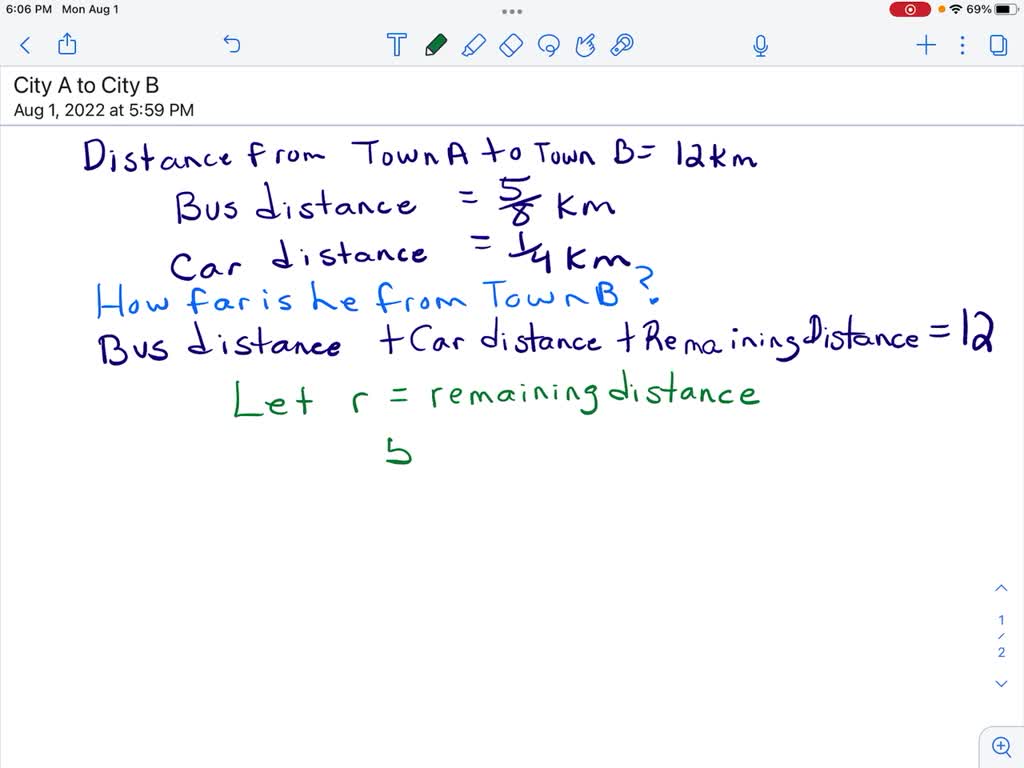 6:06 PM Mon Aug 1 69%
T
City A to City B
Aug 1, 2022 at 5:59 PM
Distance from Town A to Town B = 12 km
Bus distance = 5/8 km
Car distance = 1/4 km
How far is he from Town B?
Bus distance + Car distance + Remaining Distance = 12
Let r = remaining distance
5
1
/
2